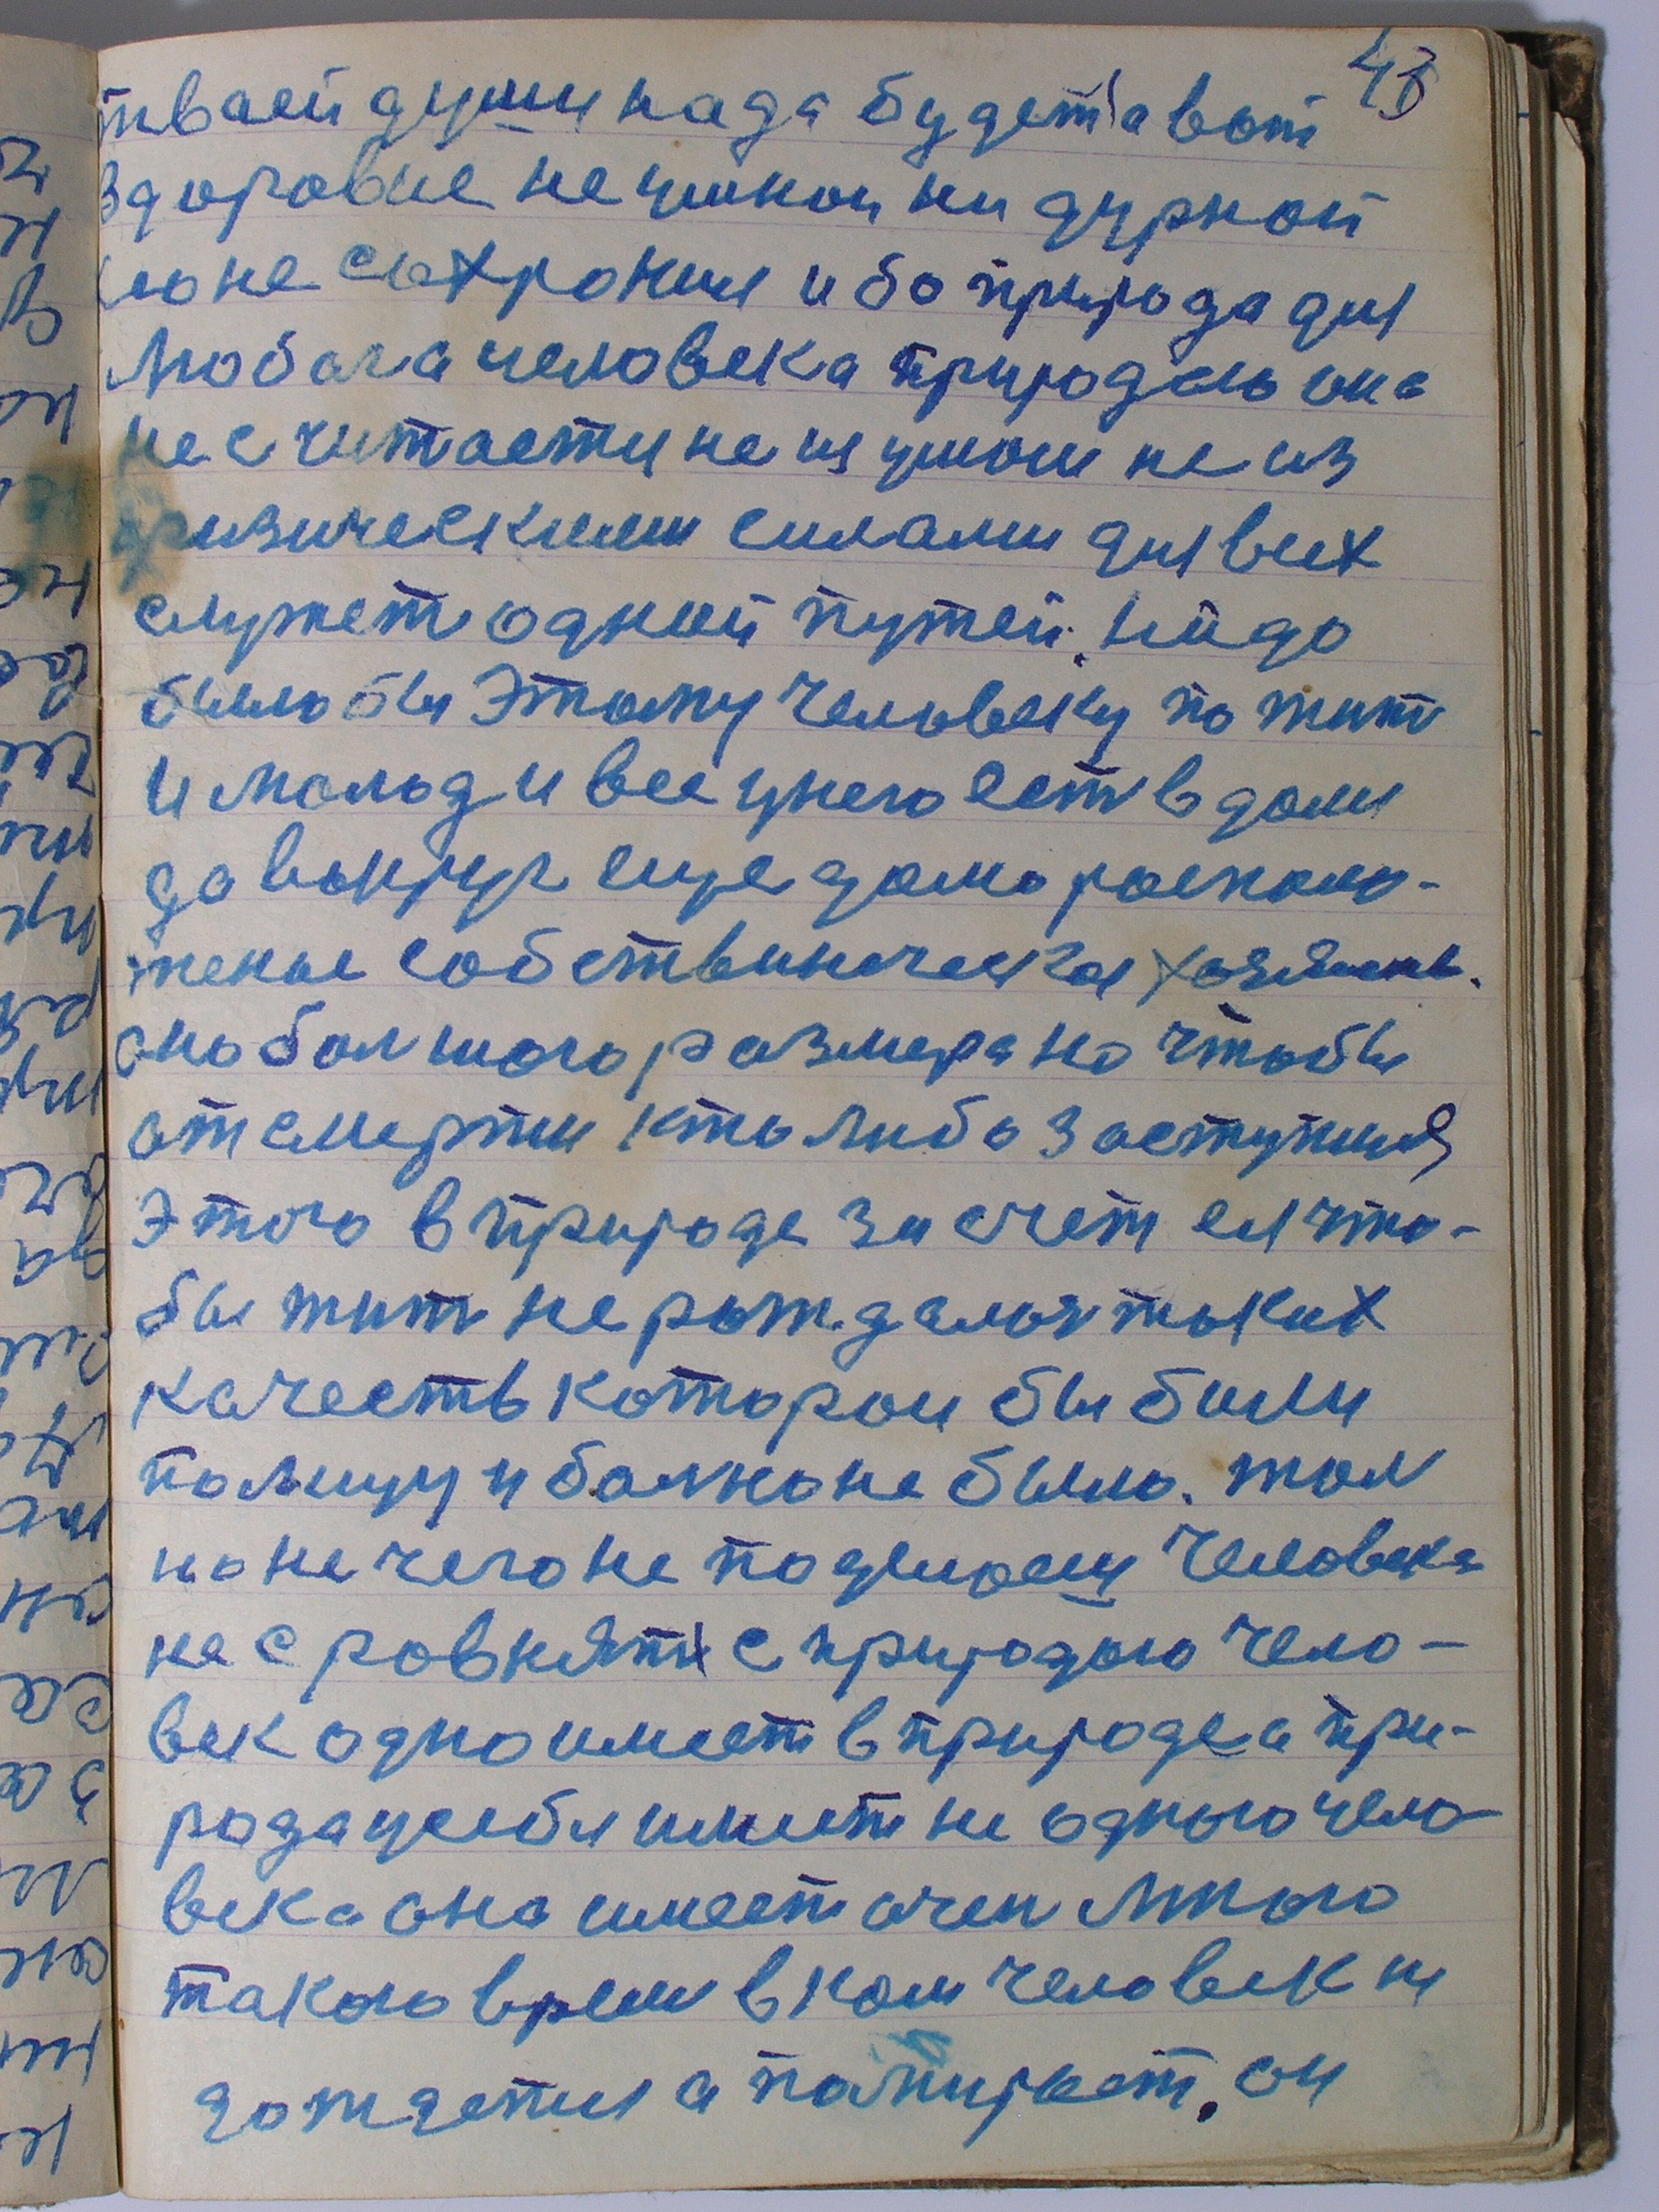 43
тваей души нада будет а вот
здоровие не умной ни дурной
не сохрония ибо природа для
любога человека природаю она
не считаетца не из умом не из
физическими силами для всех
служет одной путей. Надо
былобы Этому человеку пожит
и молод и все унего ест в доми
да вокруг еще дома располо-
жение собственическая хозяинь.
оно болшого размера но чтобы
от смерти кто либо заступился
Этого в природе за счет ея что-
бы жит не рождалося таких
качеств которои бы были
полшуи и болноне было. жал
но не чего не поделаеш Человека
не сровнят с природою чело-
век одно имеет в природе а при-
рода усебя имеет не одного чело
века она имеет очен много
такого время в ком человек не
дождется а помирает. он